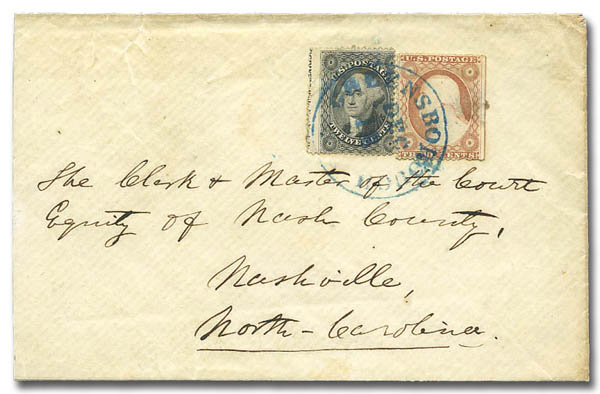 U.S. POSTAGE
TWELVE CENTS
U.S. POSTAGE
CENTS
DEC
The Clerk & Master of the Court
Equity of Nash County,
Nashville,
North-Carolina.